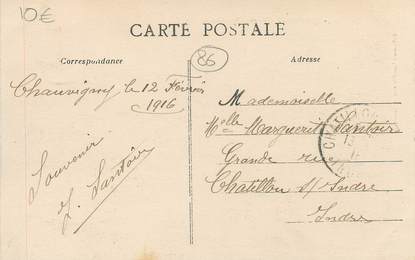 10€
CARTE POSTALE
86
Correspondance
Adresse
Chauvigny le 12 Février
1916
Souvenir
Santoir
Mademoiselle
Melle Marguerite Santoir
Grande rue
Chatillon s/ Indre
Indre